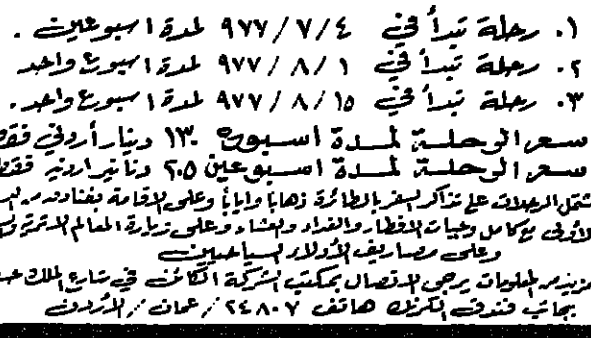 ١. رحلة تبدأ في ٩٧٧/٧/٤ لمدة اسبوعين .
٢. رحلة تبدأ في ٩٧٧/٨/١ لمدة اسبوع واحد
٣. رحلة تبدأ في ٩٧٧/٨/١٥ لمدة اسبوع واحد .
سعر الرحلة لمدة اسبوع ١٣٠ دينار أردني فقط
سعر الرحلة لمدة اسبوعين ٢٠٥ دنانير اردنيه فقط
تشمل الرحلات على تذاكر السفر بالطائرة ذهاباً واياباً وعلى الاقامة بفنادق من
الأولى مع كامل وجبات الافطار والغداء والعشاء وعلى زيارة المعالم الاثرية
وعلى مصاريف الأدلاء السياحيين
مزيد من المعلومات يرجى الاتصال بمكتب الشركة الكائن في شارع الملك
بجانب فندق الكرنك هاتف ٢٤٨٠٧ / عمان / الأردن